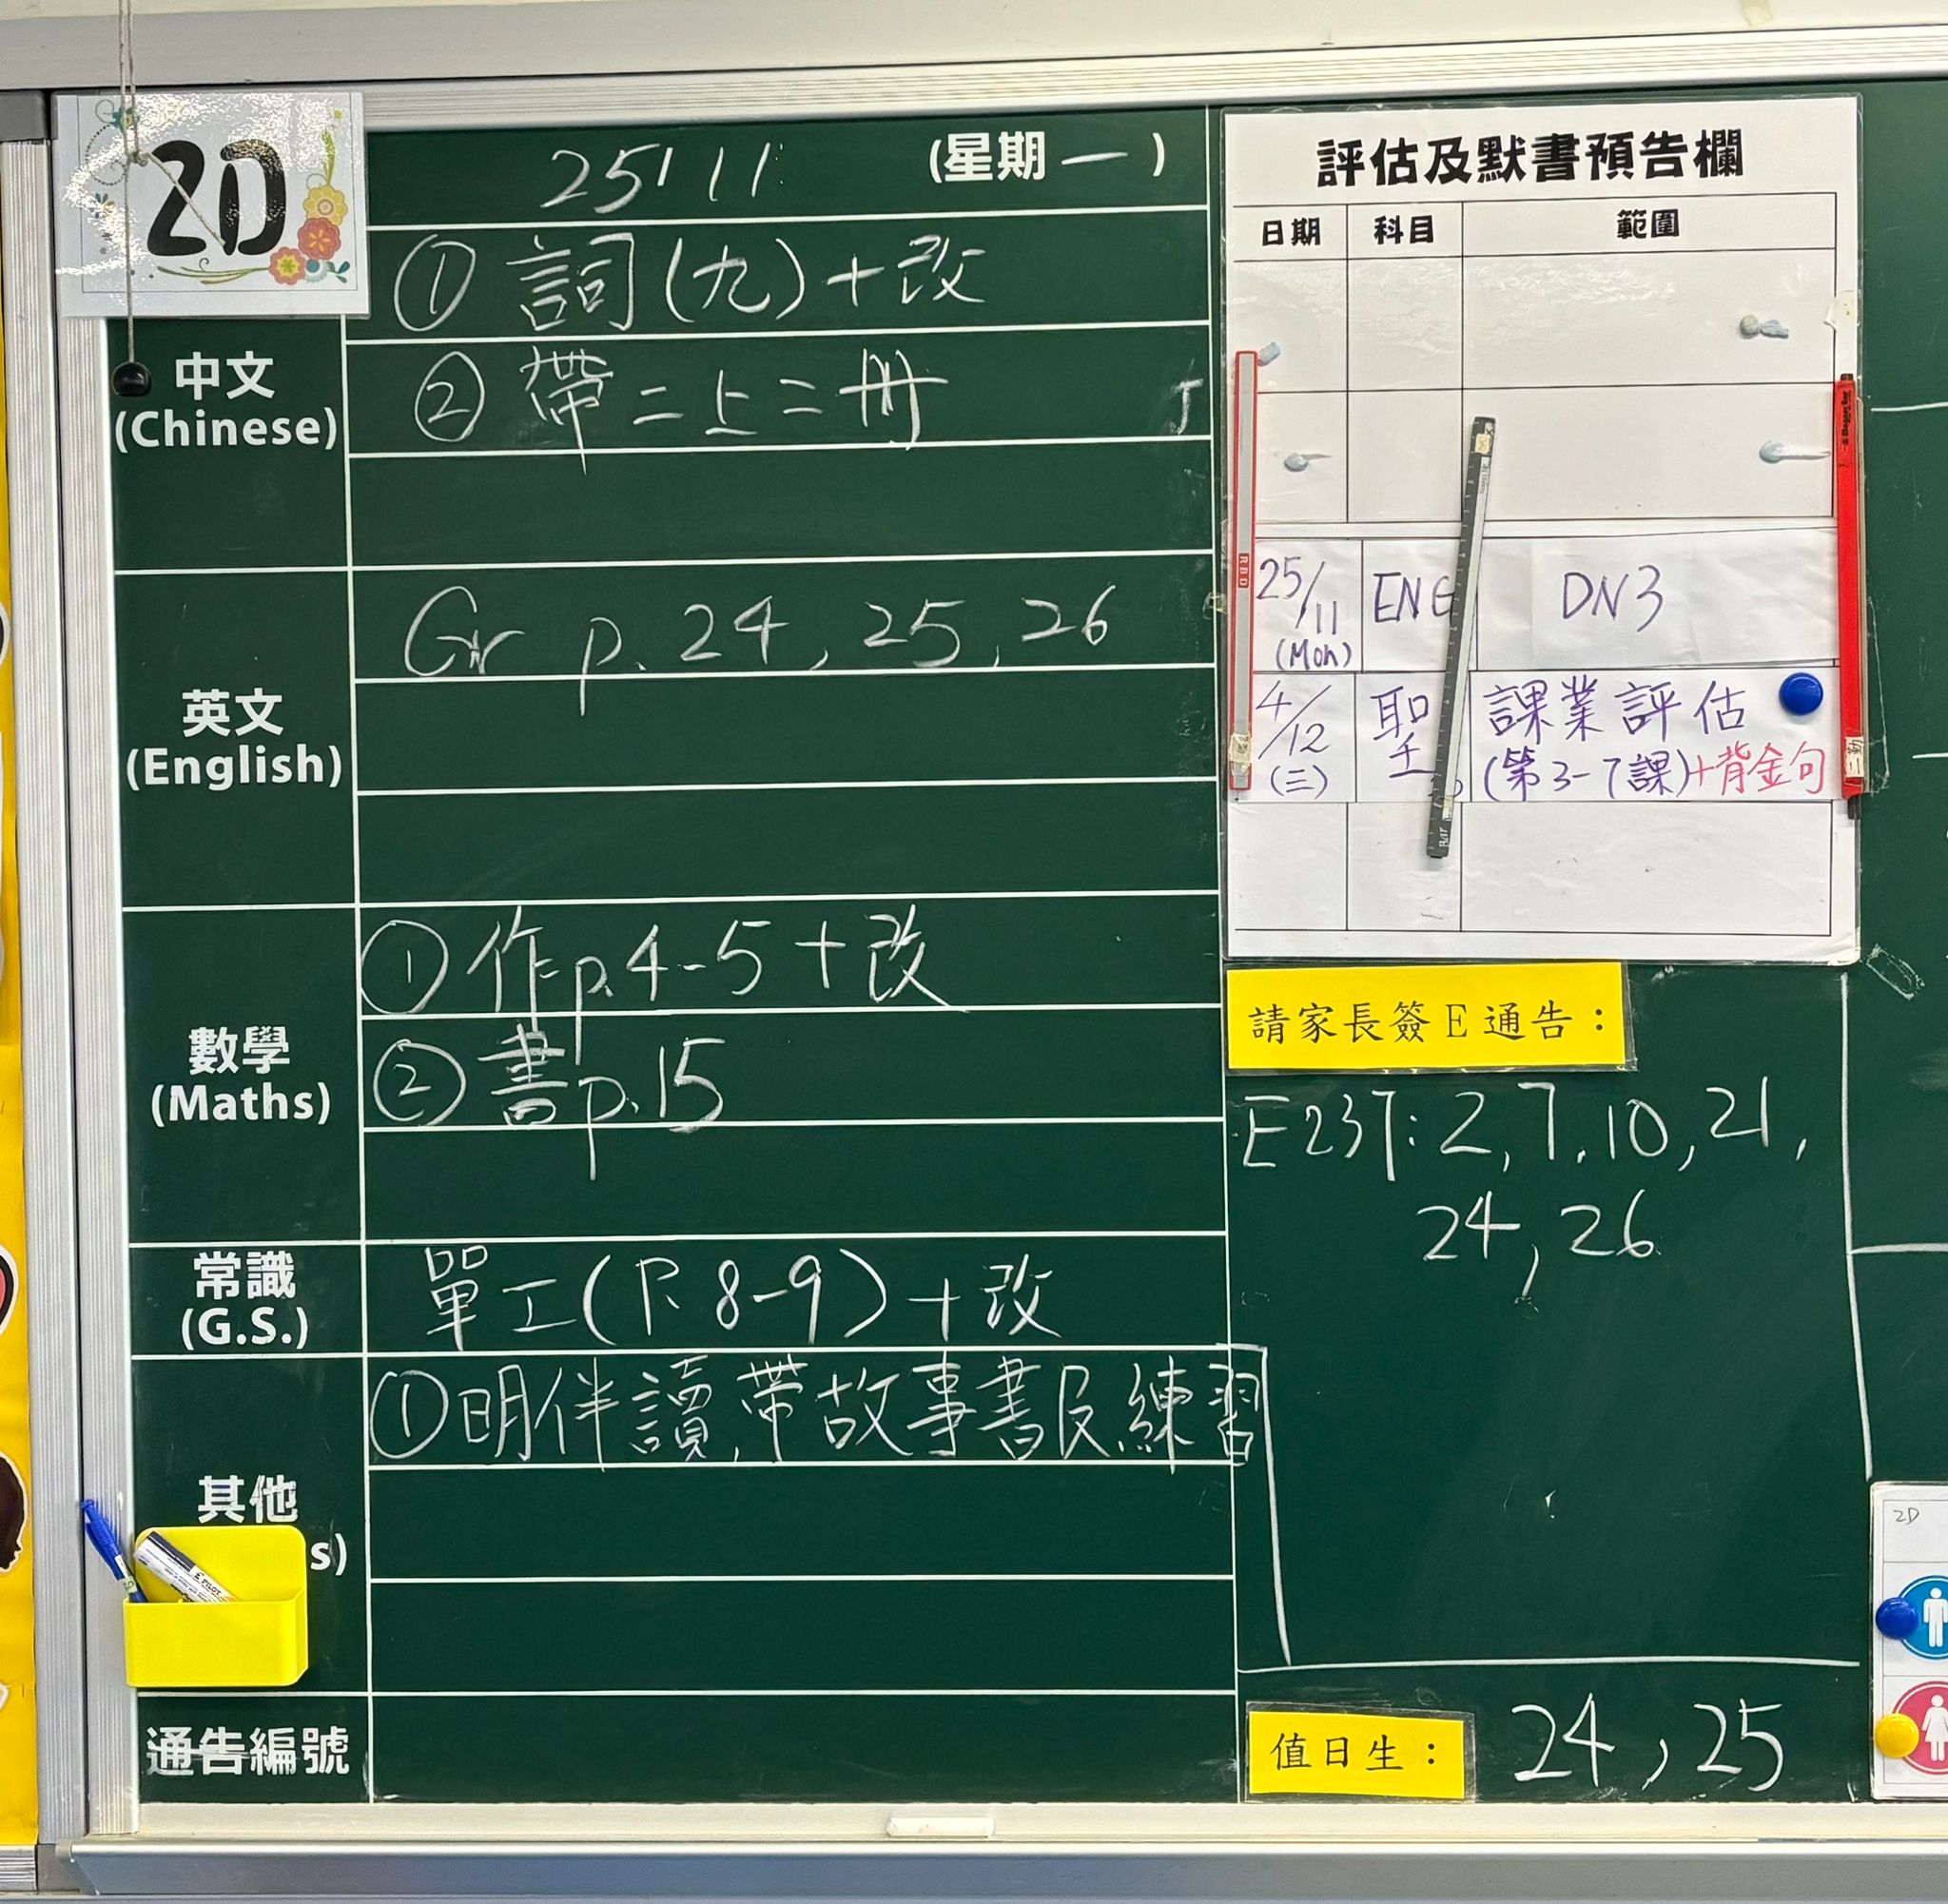 2D
25/11 (星期一)
中文
(Chinese)
① 詞(九)+改
② 帶二上二冊
英文
(English)
Gr p. 24, 25, 26
數學
(Maths)
① 作p.4-5+改
② 書p.15
常識
(G.S.)
單工(P. 8-9)+改
其他
s)
① 明伴讀,帶故事書及練習
通告編號
評估及默書預告欄
日期 科目 範圍
25/11 (Mon) ENG DN3
4/12 (三) 聖 課業評估
(第3-7課)+背金句
請家長簽E通告:
E237: 2, 7, 10, 21,
24, 26
值日生: 24, 25
2D